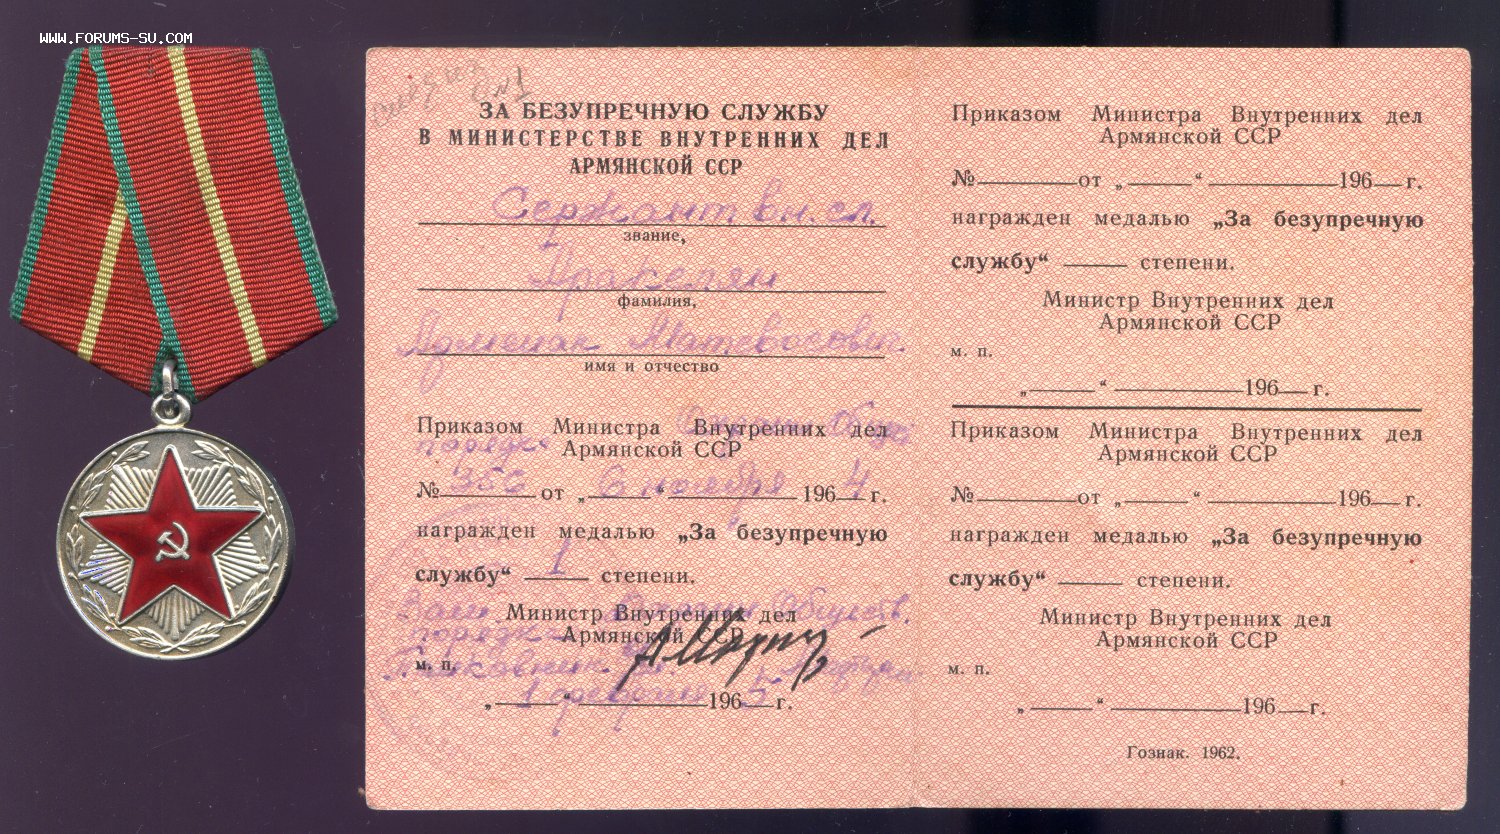 WWW.FORUMS-SU.COM
ЗА БЕЗУПРЕЧНУЮ СЛУЖБУ
В МИНИСТЕРСТВЕ ВНУТРЕННИХ ДЕЛ
АРМЯНСКОЙ ССР
Сержант вн. сл.
звание,
Аракелян
фамилия,
Матевосович
имя и отчество
Приказом Министра Внутренних дел
Армянской ССР
№ 356 от „ 6 “ ноября 1964 г.
награжден медалью „За безупречную
службу“ 1 степени.
Зам. Охраны Обществ.
Министр Внутренних дел
порядка
Армянской ССР
м. п. Полковник
„ 1 “ февраля 1965 г.
Приказом Министра Внутренних дел
Армянской ССР
№ от „ “ 196 г.
награжден медалью „За безупречную
службу“ степени.
Министр Внутренних дел
Армянской ССР
м. п.
„ “ 196 г.
Приказом Министра Внутренних дел
Армянской ССР
№ от „ “ 196 г.
награжден медалью „За безупречную
службу“ степени.
Министр Внутренних дел
Армянской ССР
м. п.
„ “ 196 г.
Гознак. 1962.